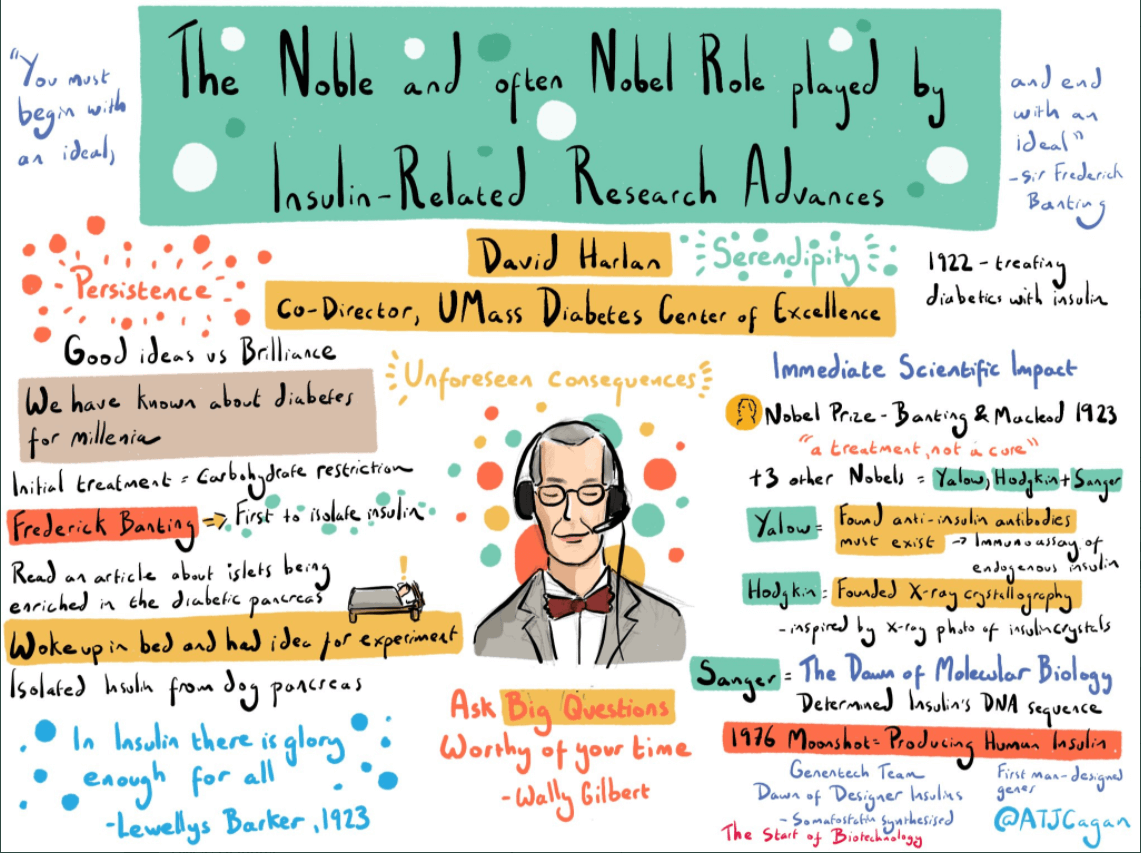 The Noble and often Nobel Role played by
Insulin-Related Research Advances
"You must
begin with
an ideal,
and end
with an
ideal"
-Sir Frederick
Banting
David Harlan
Co-Director, UMass Diabetes Center of Excellence
Serendipity
1922 - treating
diabetics with insulin
Persistence
Good ideas vs Brilliance
We have known about diabetes
for millenia
Initial treatment = Carbohydrate restriction
Frederick Banting ⇒ First to isolate insulin
Read an article about islets being
enriched in the diabetic pancreas
Woke up in bed and had idea for experiment
Isolated Insulin from dog pancreas
In Insulin there is glory
enough for all
-Lewellys Barker, 1923
Unforeseen Consequences
Ask Big Questions
Worthy of your time
-Wally Gilbert
Immediate Scientific Impact
Nobel Prize - Banting & Macleod 1923
"a treatment, not a cure"
+3 other Nobels = Yalow, Hodgkin + Sanger
Yalow = Found anti-insulin antibodies
must exist → Immunoassay of
endogenous insulin
Hodgkin = Founded X-ray crystallography
-inspired by x-ray photo of insulin crystals
Sanger = The Dawn of Molecular Biology
Determined Insulin's DNA sequence
1976 Moonshot = Producing Human Insulin
Genentech Team
Dawn of Designer Insulins
-Somatostatin synthesised
The Start of Biotechnology
First man-designed
genes
@ATJCagan